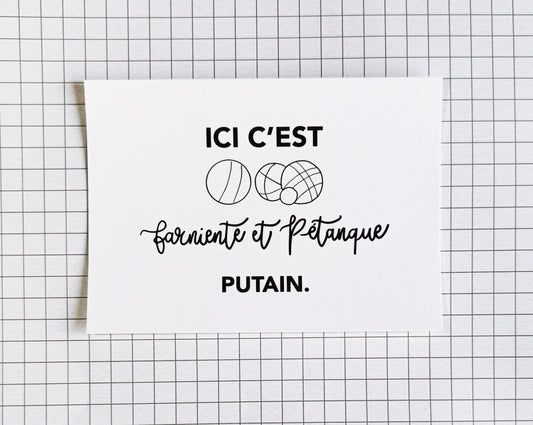 ICI C'EST
farniente et Pétanque
PUTAIN.